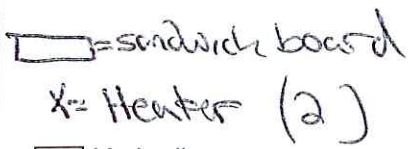 =sandwich board
X= Heater (2)